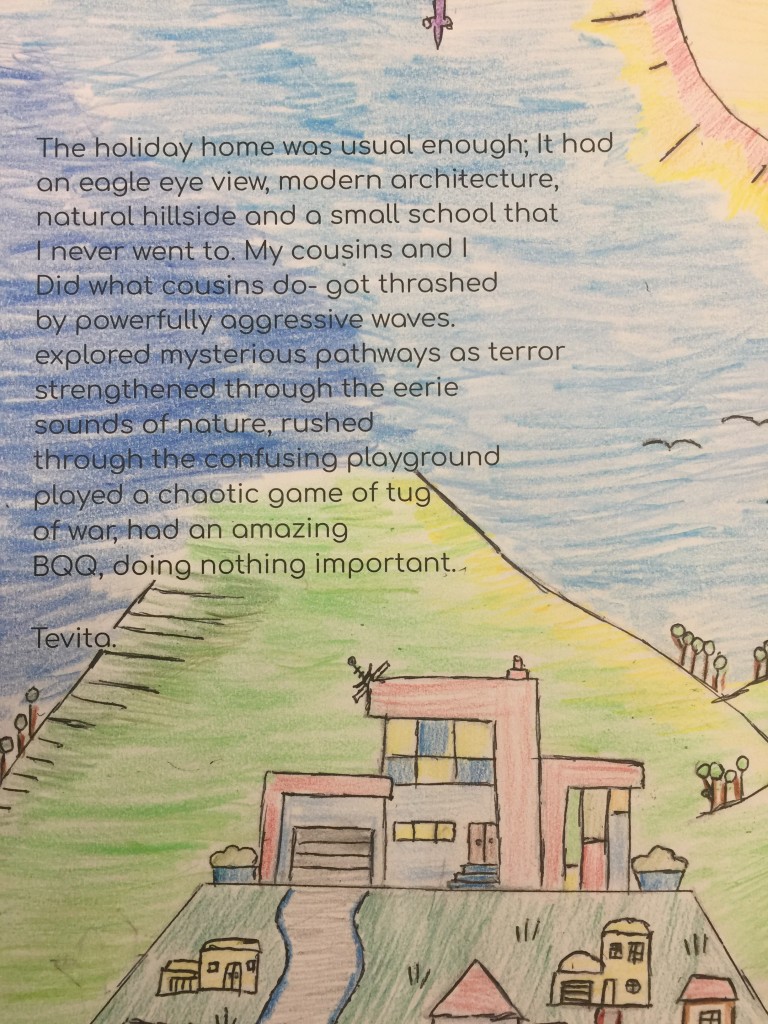 The holiday home was usual enough; It had
an eagle eye view, modern architecture,
natural hillside and a small school that
I never went to. My cousins and I
Did what cousins do- got thrashed
by powerfully aggressive waves.
explored mysterious pathways as terror
strengthened through the eerie
sounds of nature, rushed
through the confusing playground
played a chaotic game of tug
of war, had an amazing
BQQ, doing nothing important.
Tevita.